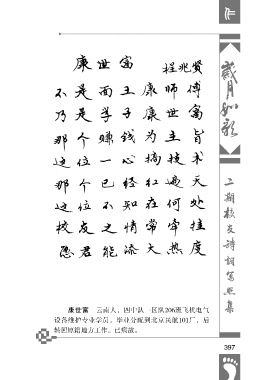 作
岁月如歌
二期校友诗词写照集
康世富
程兆贤
不是面主康师傅
乃是学子康世富
那个赚钱为主旨
这位一心搞技术
那个已经红遍天
这位不知在何处
校友之情常牵挂
愿君能添大热度
康世富 云南人，四中队一区队206班飞机电气
设备维护专业学员。毕业分配到北京民航101厂，后
转回原籍地方工作。已病故。
397